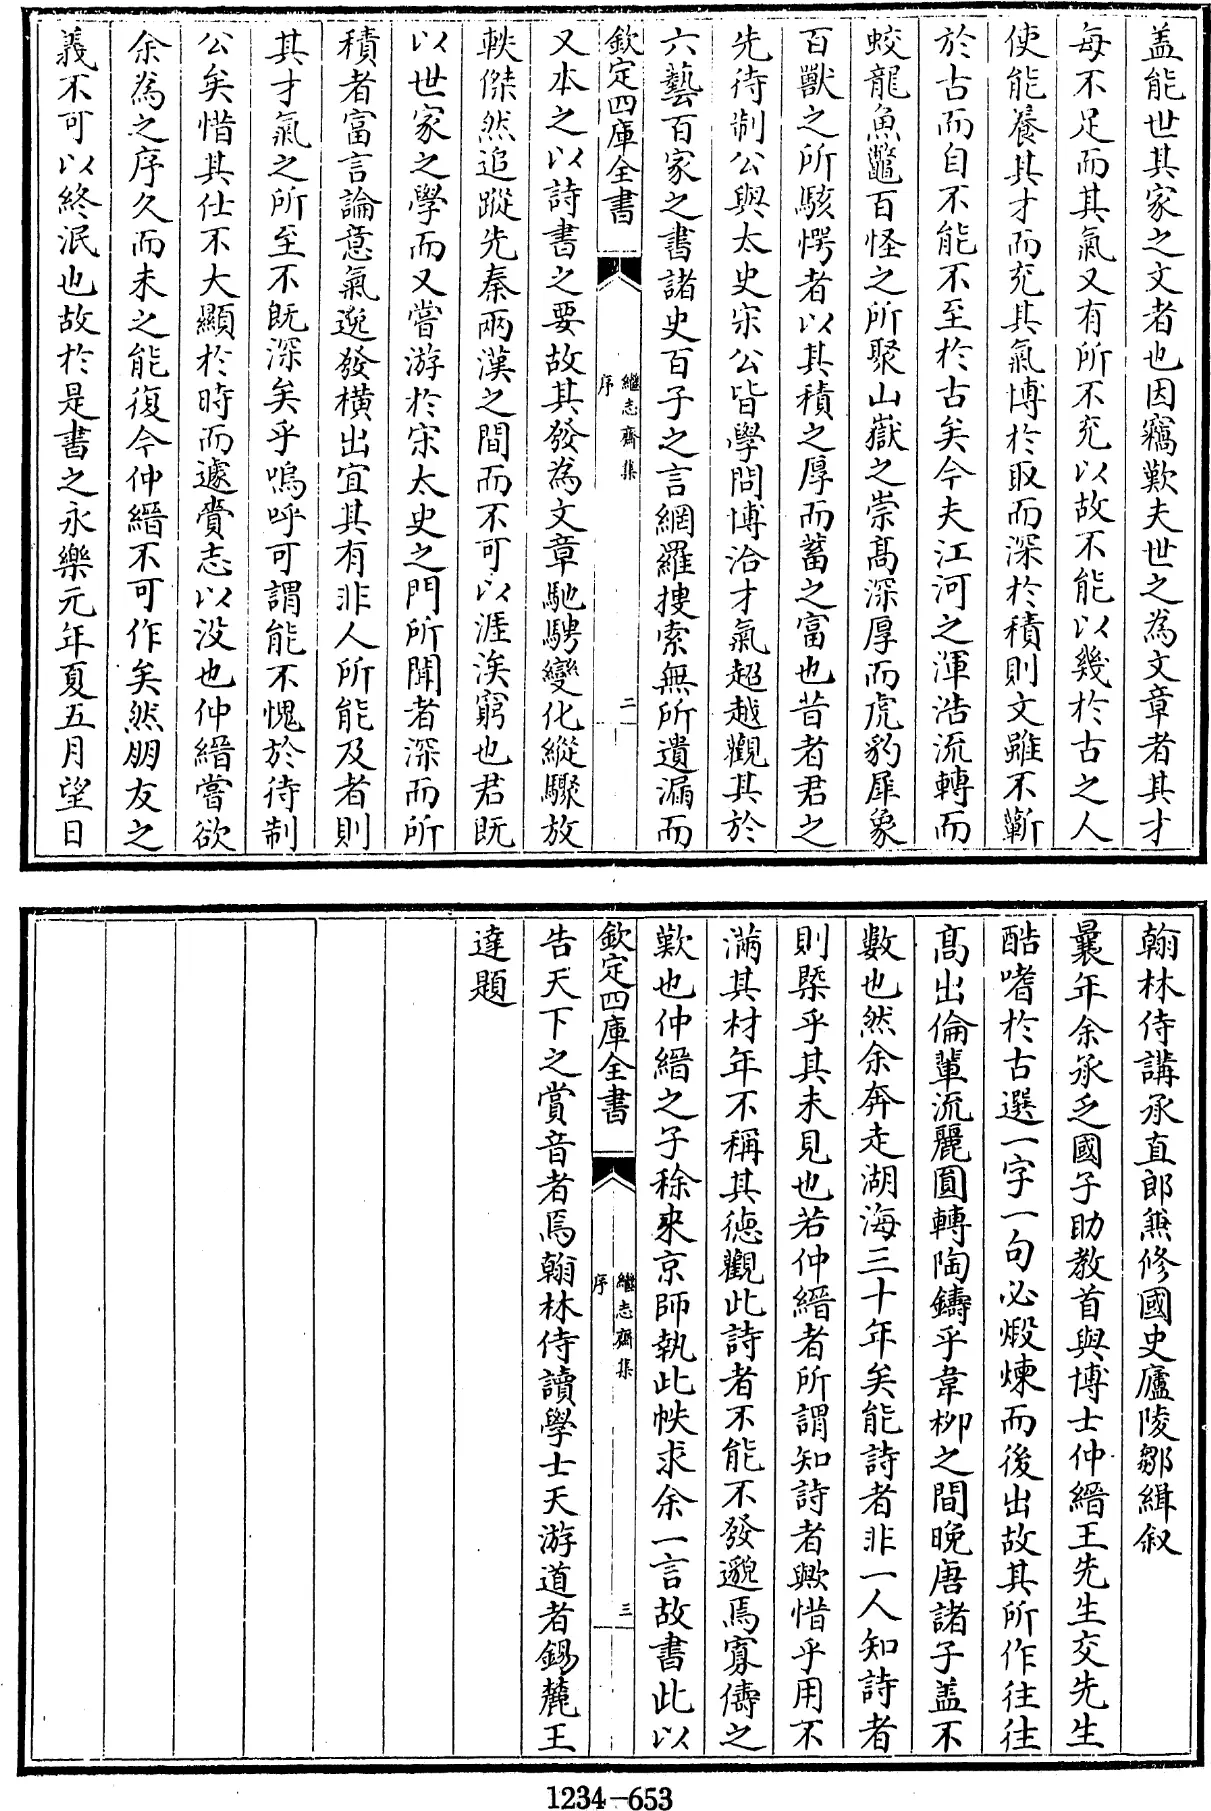 盖能世其家之文者也因竊歎夫世之為文章者其才
每不足而其氣又有所不充以故不能以幾於古之人
使能養其才而充其氣博於取而深於積則文雖不蘄
於古而自不能不至於古矣今夫江河之渾浩流轉而
蛟龍魚鼈百怪之所聚山嶽之崇髙深厚而虎豹犀象
百獸之所駭愕者以其積之厚而蓄之富也昔者君之
先待制公與太史宋公皆學問博洽才氣超越觀其於
六藝百家之書諸史百子之言網羅捜索無所遺漏而
欽定四庫全書
繼志齋集
序
二
又本之以詩書之要故其發為文章馳騁變化縱驟放
軼傑然追蹤先秦兩漢之間而不可以涯涘窮也君既
以世家之學而又嘗游於宋太史之門所聞者深而所
積者富言論意氣逸發橫出宜其有非人所能及者則
其才氣之所至不既深矣乎嗚呼可謂能不愧於待制
公矣惜其仕不大顯於時而遽賫志以没也仲縉嘗欲
余為之序久而未之能復今仲縉不可作矣然朋友之
義不可以終泯也故於是書之永樂元年夏五月望日
翰林侍講承直郎兼修國史廬陵鄒緝叙
曩年余承乏國子助教首與博士仲縉王先生交先生
酷嗜於古選一字一句必煅煉而後出故其所作往往
髙出倫輩流麗圓轉陶鑄乎韋栁之間晚唐諸子盖不
數也然余奔走湖海三十年矣能詩者非一人知詩者
則槩乎其未見也若仲縉者所謂知詩者歟惜乎用不
滿其材年不稱其徳觀此詩者不能不發邈焉寡儔之
歎也仲縉之子稌來京師執此帙求余一言故書此以
欽定四庫全書
繼志齋集
序
三
告天下之賞音者焉翰林侍讀學士天游道者錫麓王
達題
1234-653